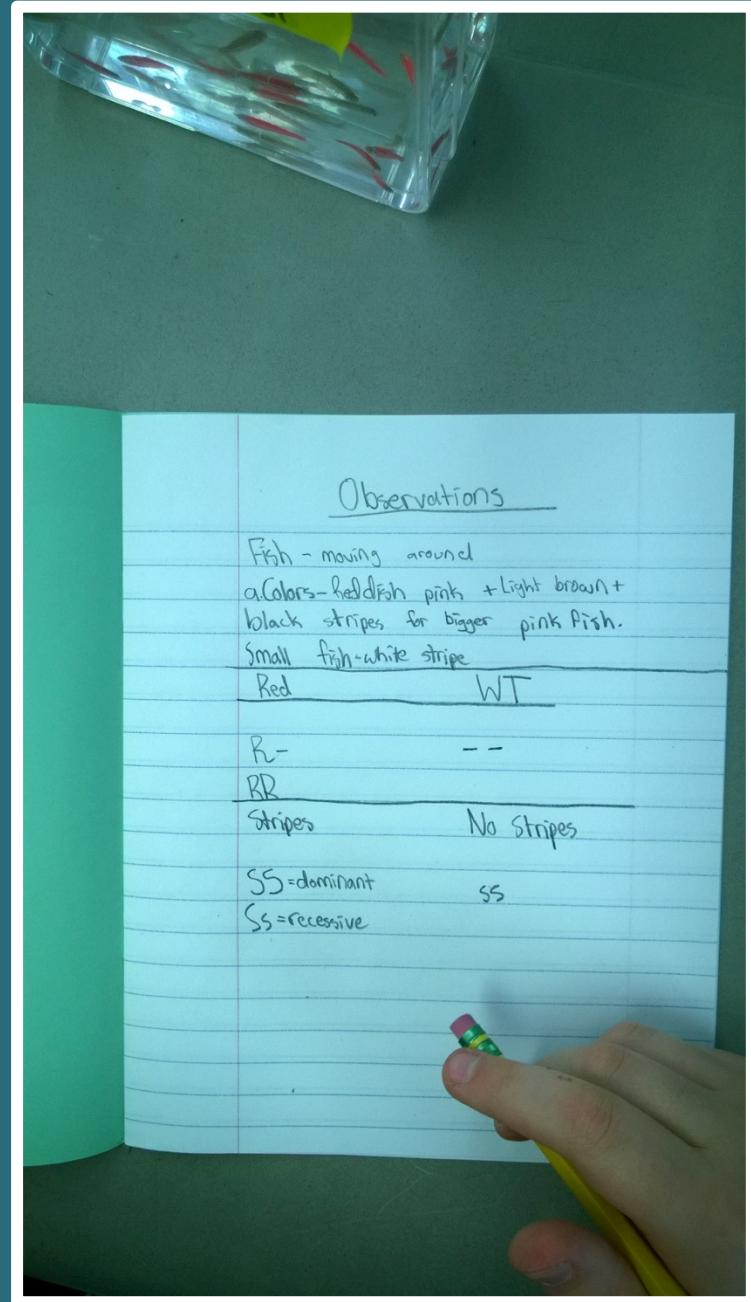 Observations
Fish - moving around
a. Colors - Reddish pink + Light brown +
black stripes for bigger pink fish.
Small fish - white stripe
Red WT
R- --
RR
Stripes No Stripes
SS = dominant ss
Ss = recessive